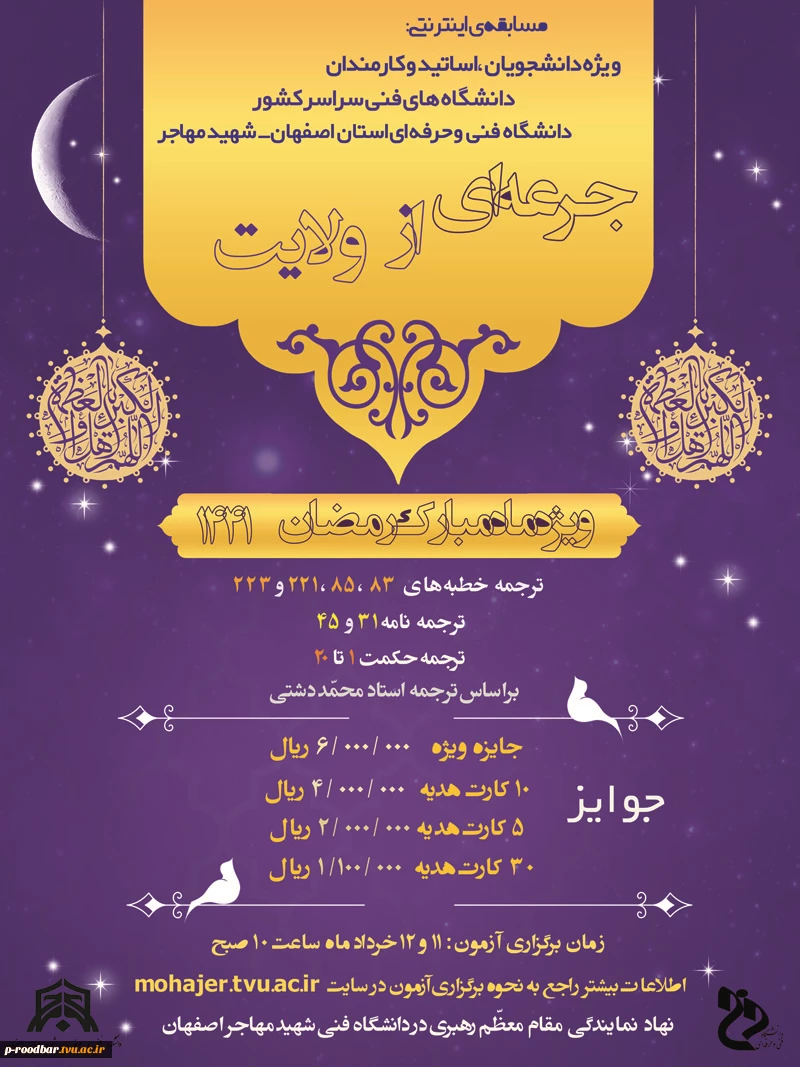 مسابقه‌ی اینترنتی:
ویژه دانشجویان ،اساتید و کارمندان
دانشگاه های فنی سراسر کشور
دانشگاه فنی و حرفه‌ای استان اصفهان_ شهید مهاجر
جرعه‌ای از ولایت
ویژه ماه مبارک رمضان ۱۴۴۱
ترجمه خطبه‌های ۸۳ ،۸۵ ،۲۲۱ و ۲۲۳
ترجمه نامه ۳۱ و ۴۵
ترجمه حکمت ۱ تا ۲۰
براساس ترجمه استاد محمّد دشتی
جوایز
جایزه ویژه ۶/۰۰۰/۰۰۰ ریال
۱۰ کارت هدیه ۴/۰۰۰/۰۰۰ ریال
۵ کارت هدیه ۲/۰۰۰/۰۰۰ ریال
۳۰ کارت هدیه ۱/۱۰۰/۰۰۰ ریال
زمان برگزاری آزمون : ۱۱ و ۱۲ خرداد ماه ساعت ۱۰ صبح
اطلاعات بیشتر راجع به نحوه برگزاری آزمون در سایت mohajer.tvu.ac.ir
نهاد نمایندگی مقام معظّم رهبری در دانشگاه فنی شهید مهاجر اصفهان
p-roodbar.tvu.ac.ir